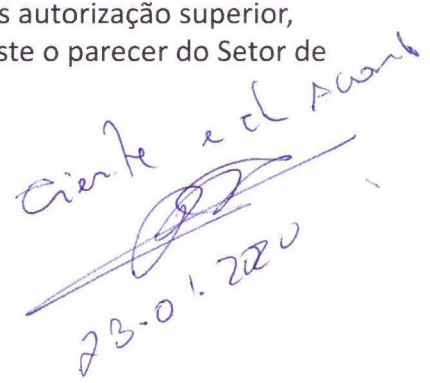 s autorização superior,
ste o parecer do Setor de
Ciente e d Acord
23.01.2020